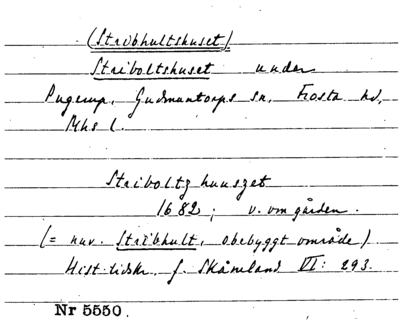 (Ströbhultshuset)
Striboltshuset under
Pugerup, Gudmuntorps sn, Frosta hd,
Mhs l.
Striboltz huuszet
1682; v. om gården.
(= nuv. Ströbhult, obebyggt område)
Hist. tidskr. f. Skåneland VI: 293.
Nr 5550.